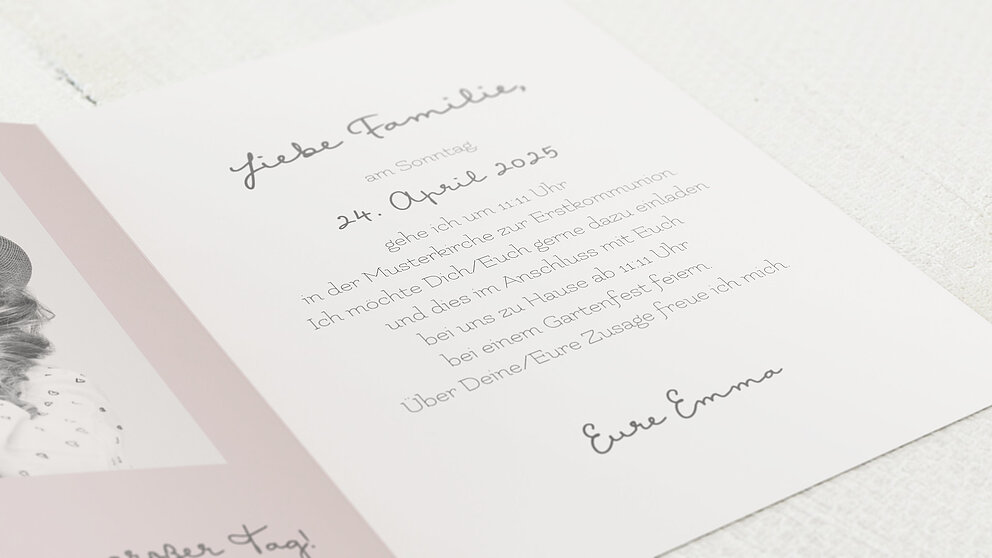 Liebe Familie,
am Sonntag
24. April 2025
gehe ich um 11:11 Uhr
in der Musterkirche zur Erstkommunion.
Ich möchte Dich/Euch gerne dazu einladen
und dies im Anschluss mit Euch
bei uns zu Hause ab 11:11 Uhr
bei einem Gartenfest feiern.
Über Deine/Eure Zusage freue ich mich.
Eure Emma
großer Tag!